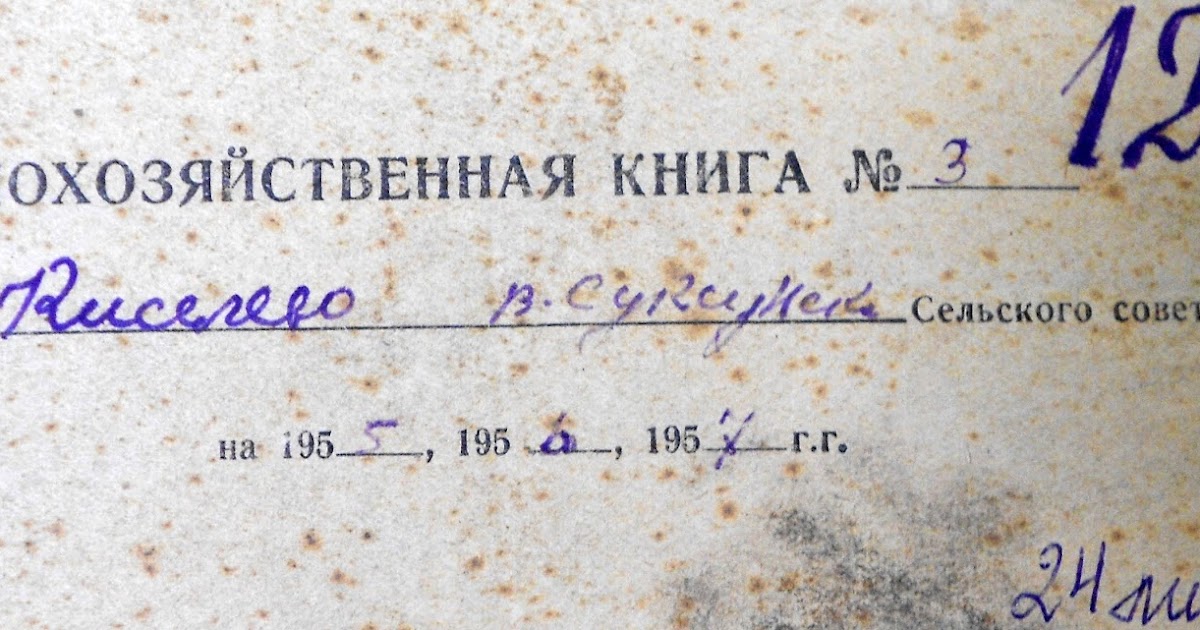 12
ОХОЗЯЙСТВЕННАЯ КНИГА № 3
Киселево в. Суксунск. Сельского совет
на 1955, 1956, 1957 г.г.
24 ли